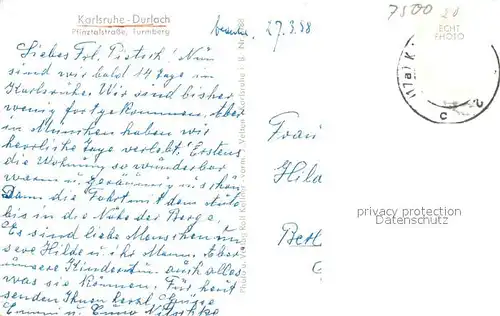 Karlsruhe-Durlach
Pfinztalstraße, Turmberg
27.3.58
7500 20
ECHT
PHOTO
(17a) K
c
Liebes Frl. Pietsch! Nun
sind wir bald 14 Tage in
Karlsruhe. Wir sind bisher
wenig fortgekommen. Aber
in München haben wir
herrliche Tage verlebt. Erstens
die Wohnung so wunderbar
warm u. geräumig u. schön
Dann die Fahrt mit dem Auto
bis in die Nähe der Berge.
Es sind liebe Menschen un-
sere Hilde u. ihr Mann. Aber
unsere Kinder tun auch alles
was sie können. Für heut
senden Ihnen herzl. Grüsse
Emmi u. Enno Nitschke
Frau
Hild
Berl
privacy protection
Datenschutz